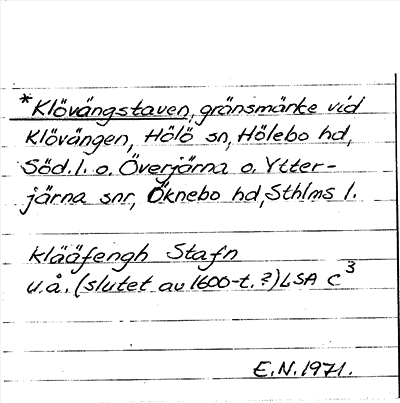 *Klövängstaven, gränsmärke vid
Klövängen, Hölö sn, Hölebo hd,
Söd. l. o. Överjärna o. Ytter-
järna snr, Öknebo hd, Sthlms l.
Klääfengh Stafn
u.å. (slutet av 1600-t.?) LSA C³
E.N. 1971.